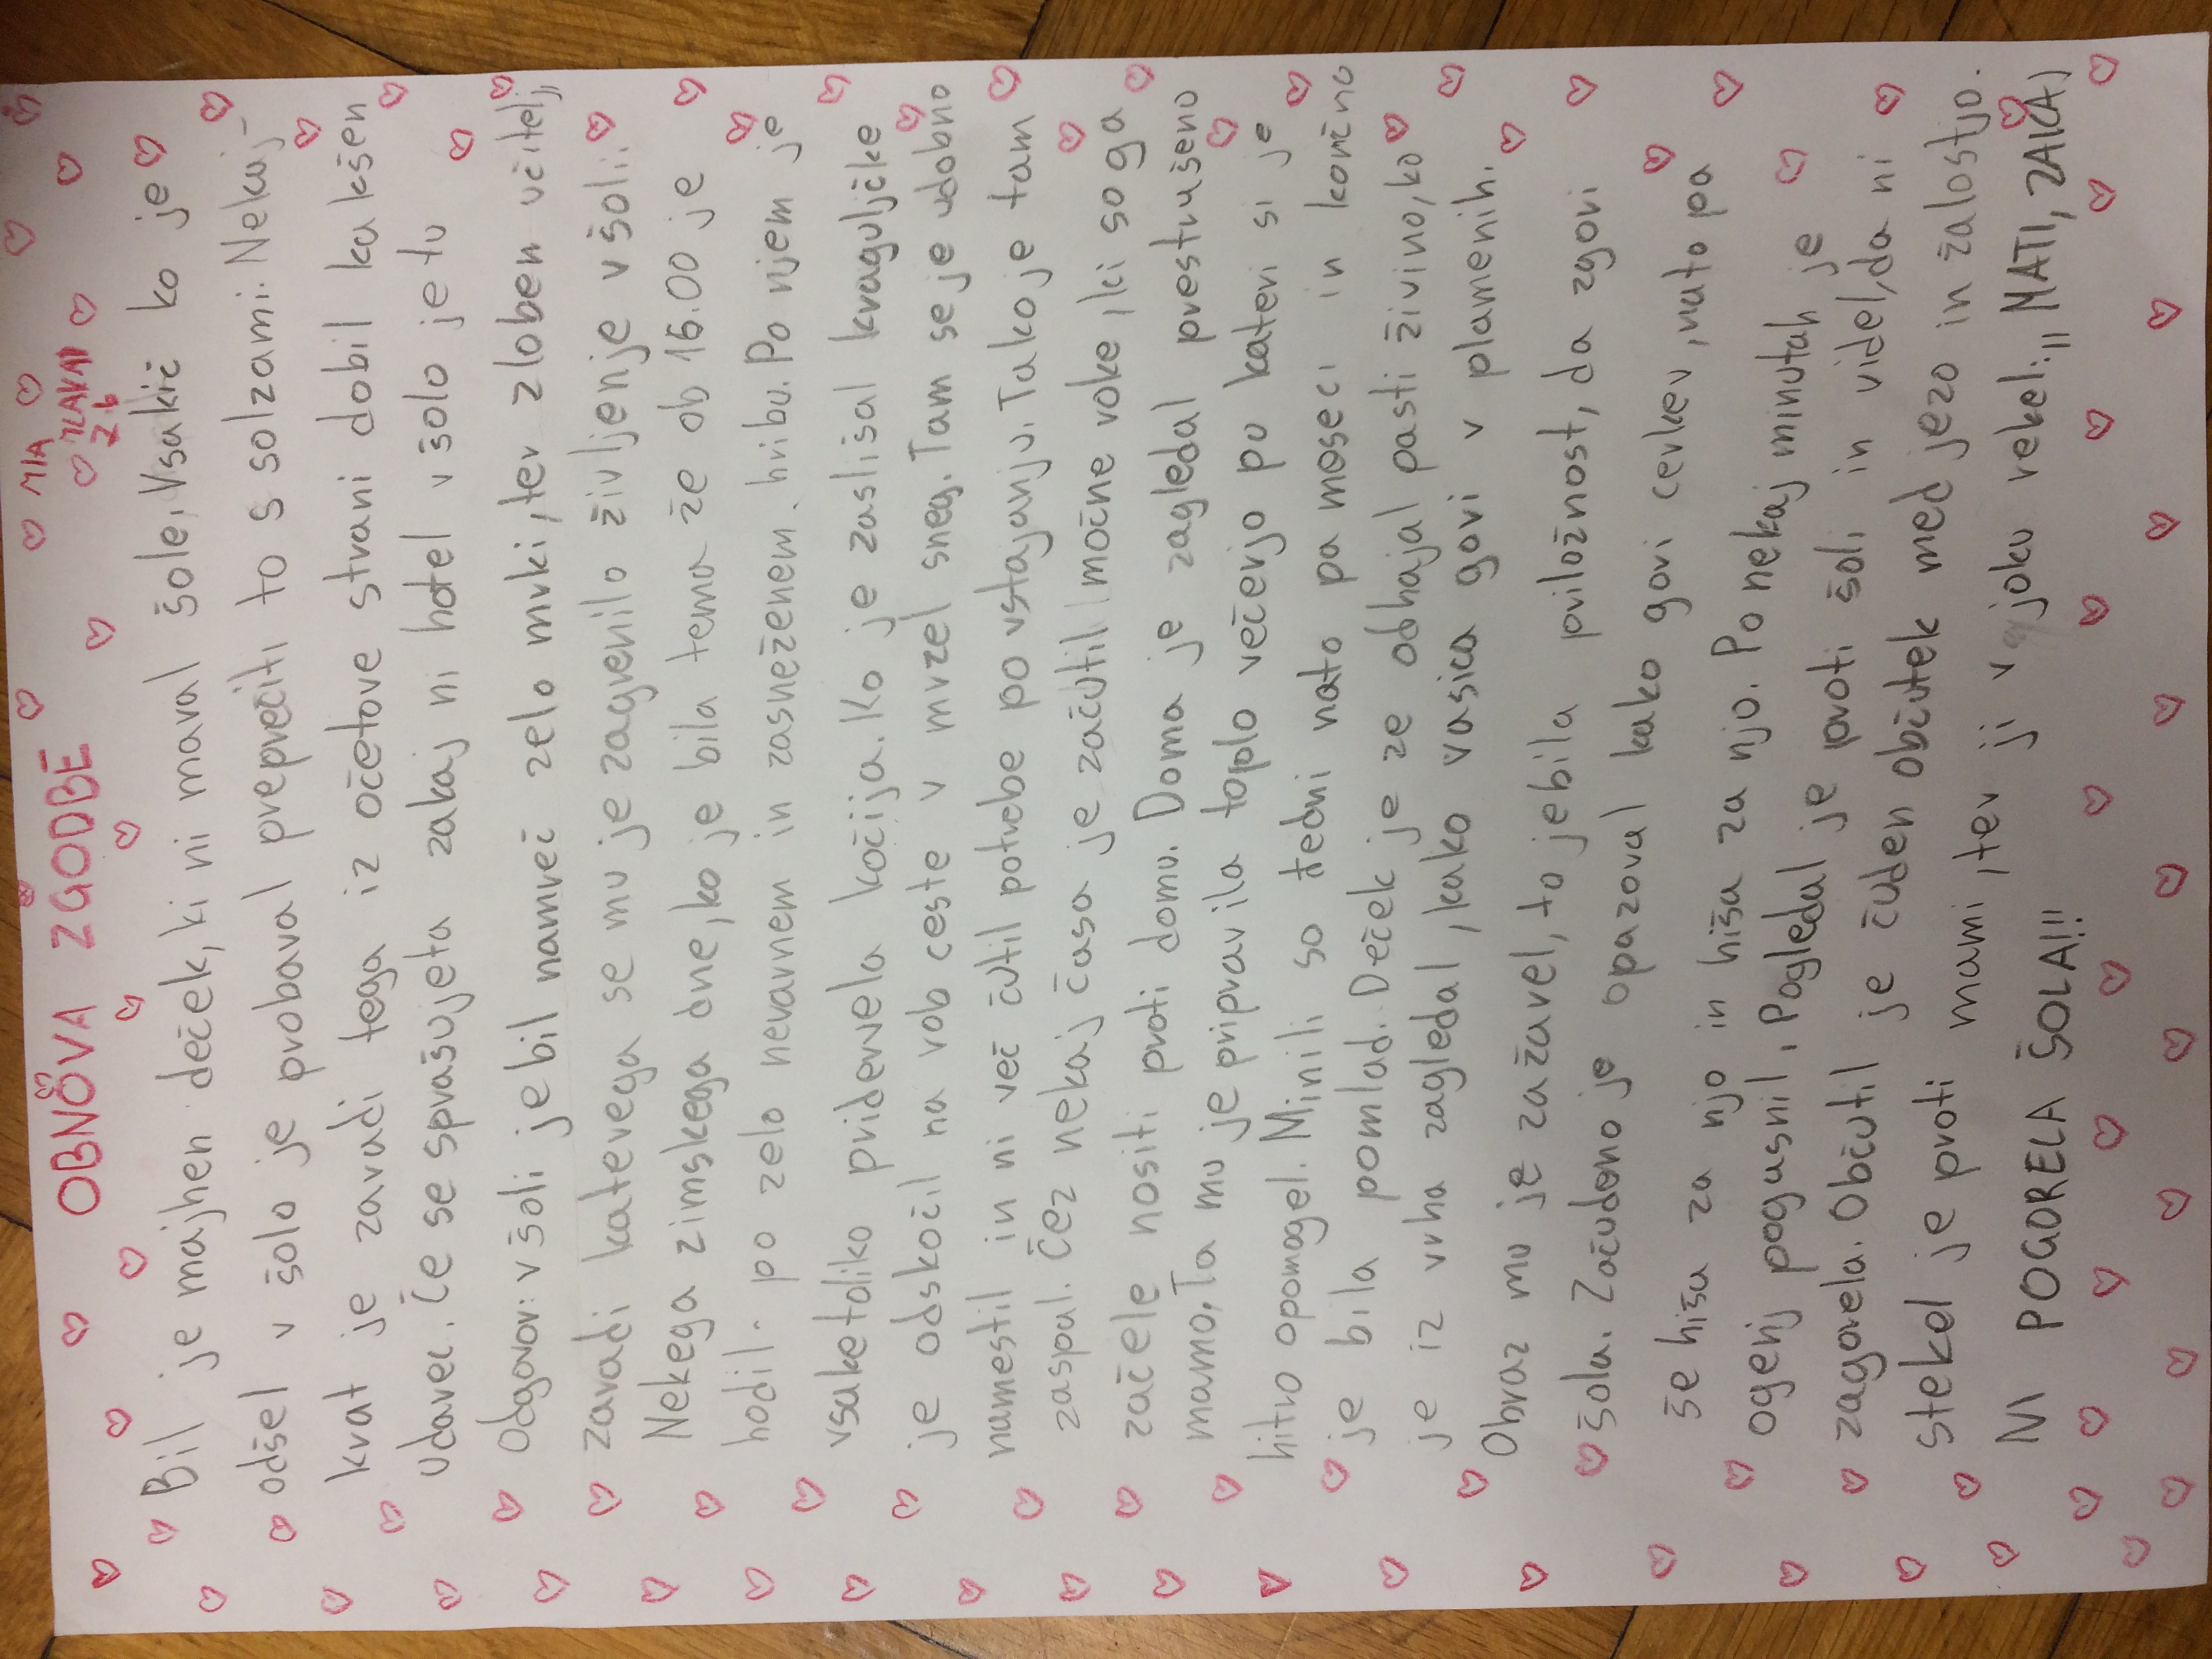 MIA
MLAKAR
7.b
OBNOVA ZGODBE
Bil je majhen deček, ki ni maral šole. Vsakič ko je
odšel v šolo je probaval preprečiti to s solzami. Nekaj-
krat je zaradi tega iz očetove strani dobil kakšen
udarec. Če se sprašujeta zakaj ni hotel v šolo je tu
Odgovor: v šoli je bil namreč zelo mrki, ter zloben učitelj,
zaradi katerega se mu je zagrenilo življenje v šoli.
Nekega zimskega dne, ko je bila tema že ob 16.00 je
hodil. po zelo nevarnem in zasneženem. hribu. Po njem je
vsaketoliko pridervela kočija. Ko je zaslišal kraguljčke
je odskočil na rob ceste v mrzel sneg. Tam se je udobno
namestil in ni več čutil potrebe po vstajanju. Tako je tam
zaspal. Čez nekaj časa je začutil močne roke, ki so ga
začele nositi proti domu. Doma je zagledal prestrušeno
mamo. Ta mu je pripravila toplo večerjo po kateri si je
hitro opomogel. Minili so tedni nato pa meseci in končno
je bila pomlad. Deček je ze odhajal pasti živino, ko
je iz vrha zagledal, kako vasica gori v plamenih.
Obraz mu je zažarel, to je bila priložnost, da zgori
šola. Začudeno je opazoval kako gori cerkev, nato pa
še hiša za njo in hiša za njo. Po nekaj minutah je
ogenj pogasnil. Pogledal je proti šoli in videl, da ni
zagorela. Občutil je čuden občutek med jezo in žalostjo.
Stekel je proti mami, ter ji v joku rekel: ,,MATI, ZAKAJ
NI POGORELA ŠOLA!!!